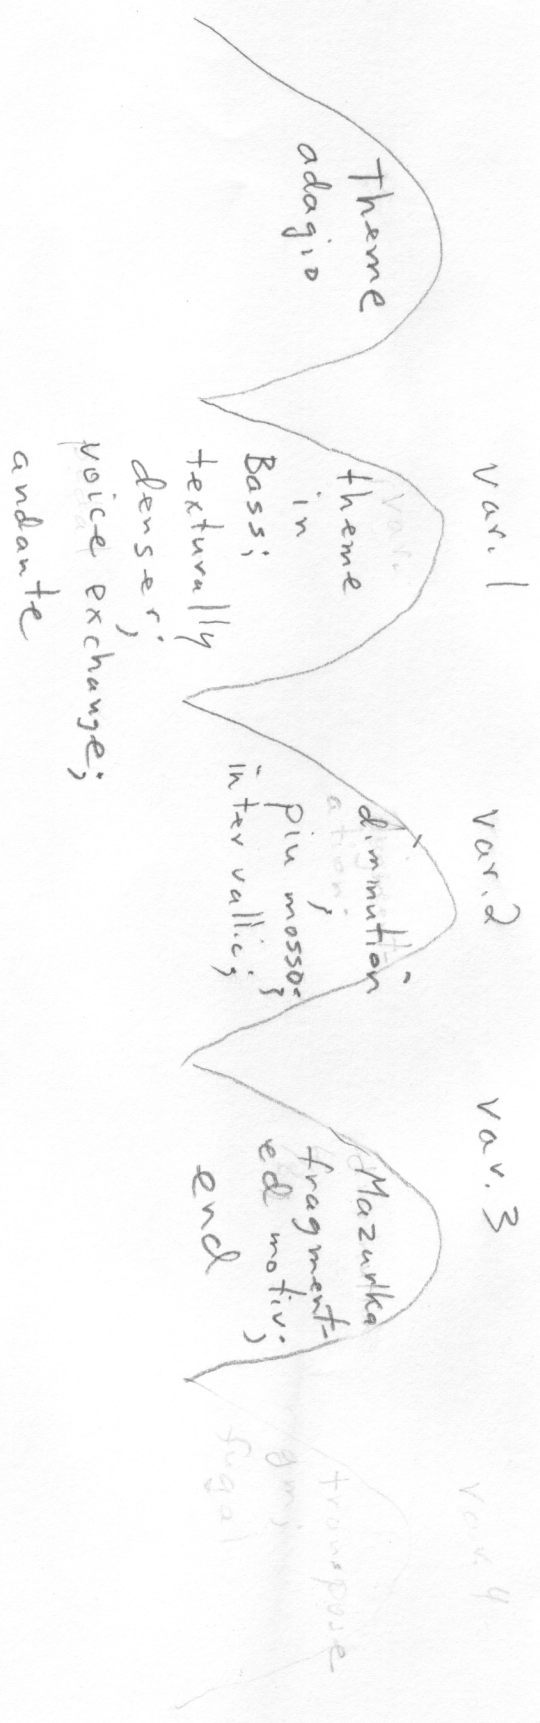 Theme
adagio
Var. 1
theme
in
Bass;
texturally
denser;
voice exchange;
andante
Var. 2
diminution;
piu mosso;
intervallic;
Var. 3
Mazurka
fragment-
ed motiv;
end
Var. 4
transpose
gm;
fugal